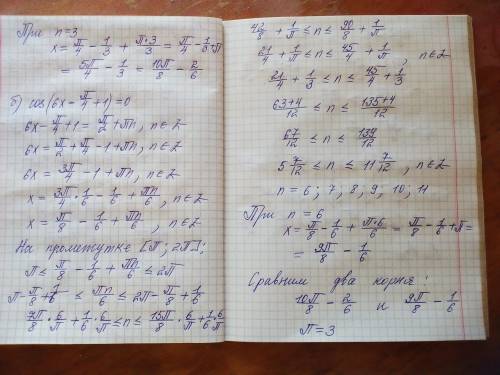 При n=3
x = π/4 - 1/3 + π·3/3 = π/4 - 1/3 + π
= 5π/4 - 1/3 = 10π/8 - 2/6
б) cos(6x - π/4 + 1) = 0
6x - π/4 + 1 = π/2 + πn, n∈Z
6x = π/2 + π/4 - 1 + πn, n∈Z
6x = 3π/4 - 1 + πn, n∈Z
x = 3π/4 · 1/6 - 1/6 + πn/6, n∈Z
x = π/8 - 1/6 + πn/6, n∈Z
На промежутке [π; 2π]:
π ≤ π/8 - 1/6 + πn/6 ≤ 2π
π - π/8 + 1/6 ≤ πn/6 ≤ 2π - π/8 + 1/6
7π/8 · 6/π + 1/6 · 6/π ≤ n ≤ 15π/8 · 6/π + 1/6 · 6/π
42/8 + 1/π ≤ n ≤ 90/8 + 1/π
21/4 + 1/π ≤ n ≤ 45/4 + 1/π, n∈Z
21/4 + 1/3 ≤ n ≤ 45/4 + 1/3
63+4/12 ≤ n ≤ 135+4/12
67/12 ≤ n ≤ 139/12
5 7/12 ≤ n ≤ 11 7/12, n∈Z
n = 6; 7; 8; 9; 10; 11
При n = 6
x = π/8 - 1/6 + π·6/6 = π/8 - 1/6 + π =
= 9π/8 - 1/6
Сравним два корня:
10π/8 - 2/6 и 9π/8 - 1/6
π = 3